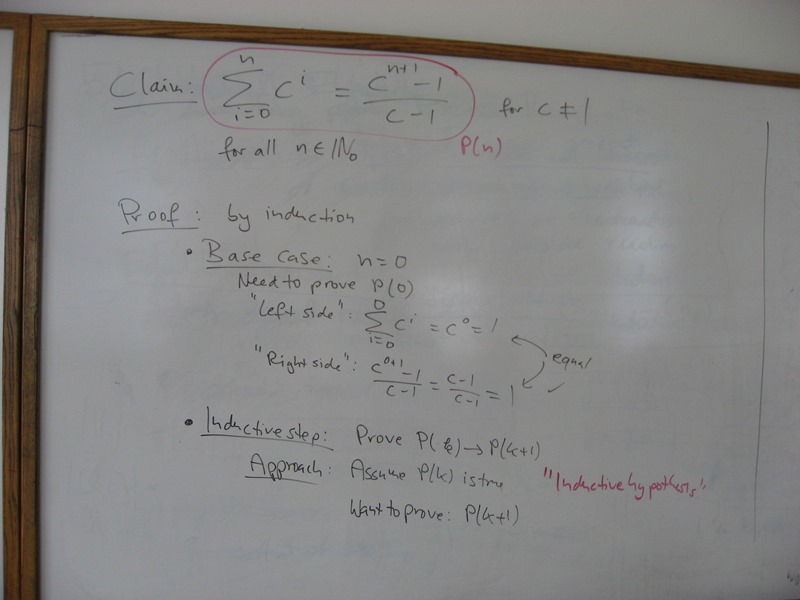 Claim: ∑_{i=0}^{n} c^i = (c^{n+1} - 1)/(c - 1) for c ≠ 1
for all n ∈ ℕ₀ P(n)
Proof: by induction
• Base case: n = 0
Need to prove P(0)
"Left side": ∑_{i=0}^{0} c^i = c^0 = 1
equal
"Right side": (c^{0+1} - 1)/(c - 1) = (c - 1)/(c - 1) = 1 ✓
• Inductive step: Prove P(k) → P(k+1)
Approach: Assume P(k) is true "Inductive hypothesis"
Want to prove: P(k+1)